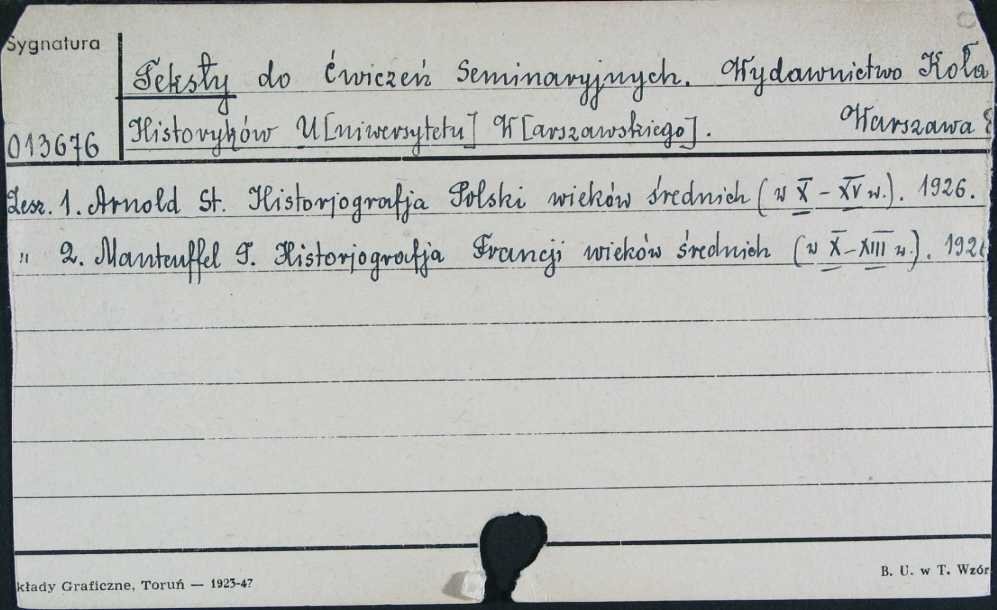 Sygnatura
Teksty do Ćwiczeń Seminaryjnych. Wydawnictwo Koła
013676 Historyków U[niwersytetu] W[arszawskiego]. Warszawa
Zesz. 1. Arnold St. Historjografja Polski wieków średnich (w X – XV w.). 1926.
" 2. Manteuffel T. Historjografja Francji wieków średnich (w X–XIII w.). 192
kłady Graficzne, Toruń — 1923-47
B. U. w T. Wzór